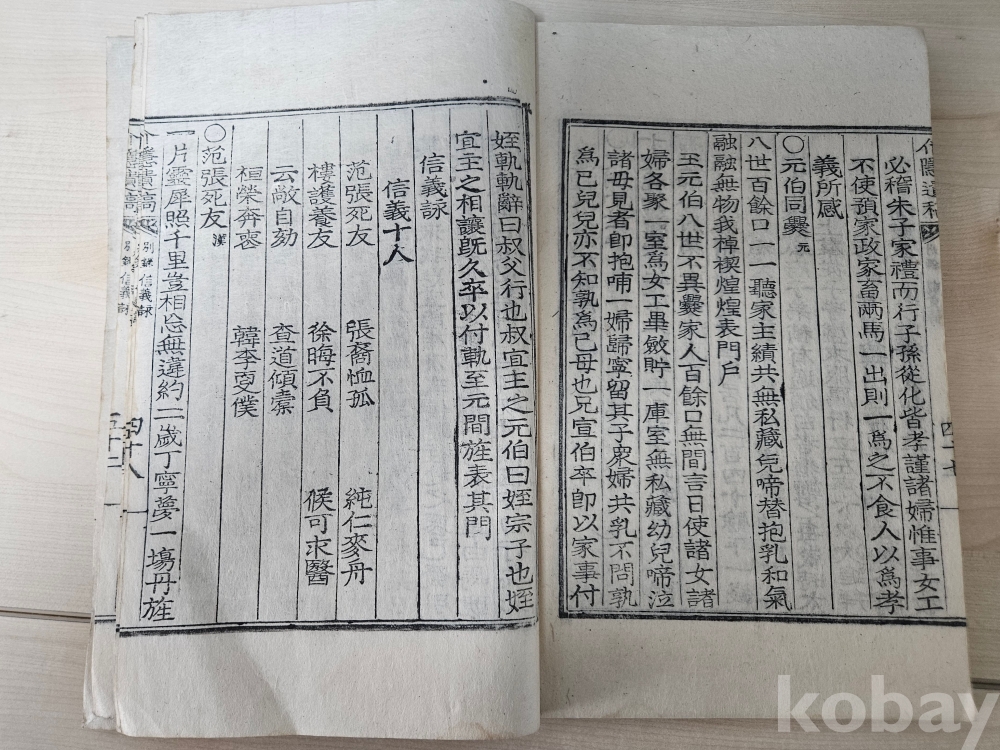 必稽朱子家禮而行子孫從化皆孝謹諸婦惟事女工
不使預家政家畜兩馬一出則一爲之不食人以爲孝
義所感
○元伯同爨 元
八世百餘口一一聽家主績共無私藏兒啼替抱乳和氣
融融無物我棹楔煌煌表門戶
王元伯八世不異爨家人百餘口無間言日使諸女諸
婦各家一室爲女工畢斂貯一庫室無私藏幼兒啼泣
諸母見者卽抱哺一婦歸寧留其子衆婦共乳不問孰
爲己兒兒亦不知孰爲己母也兄宣伯卒卽以家事付
姪軌軌辭曰叔父行也叔宜主之元伯曰姪宗子也姪
宜主之相讓旣久卒以付軌至元間旌表其門
信義詠
信義十人
范張死友 張裔恤孤 純仁麥舟
樓護養友 徐晦不負 侯可求醫
云敞自劾 查道傾橐
桓榮奔喪 韓李更僕
○范張死友 漢
一片靈犀照千里豈相忘無違約二歲丁寧夢一場丹旌
別錄 信義詠
四十八
四十七
kobay